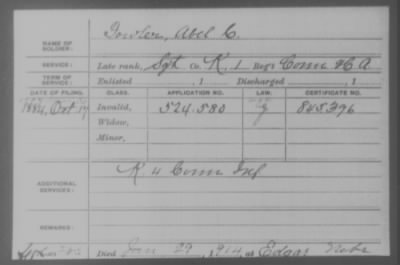 NAME OF SOLDIER: Fowler, Abel C.
SERVICE: Late rank, Sgt Co. K, 1 Reg't Conn H A
TERM OF SERVICE: Enlisted , 1 Discharged , 1
DATE OF FILING. CLASS. APPLICATION NO. LAW. CERTIFICATE NO.
1884, Oct 17 Invalid, 524.580 G 845,396
Widow,
Minor,
ADDITIONAL SERVICES: K 4 Conn Inf
REMARKS:
Died Jan 29, 1914, at Edgar Nebr